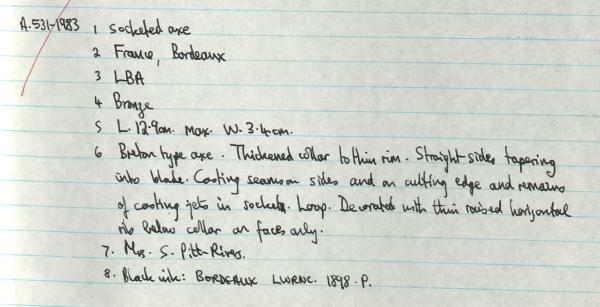 A.531-1983 1 Socketed axe
2 France, Bordeaux
3 LBA
4 Bronze
5 L. 12.9cm. Max. W. 3.4cm.
6 Breton type axe. Thickened collar to thin rim. Straight sides tapering
into blade. Casting seams on sides and on cutting edge and remains
of casting jets in socket. Loop. Decorated with thin raised horizontal
rib below collar on faces only.
7. Mrs. S. Pitt-Rivers.
8. Black ink: BORDEAUX LWRNC. 1898. P.